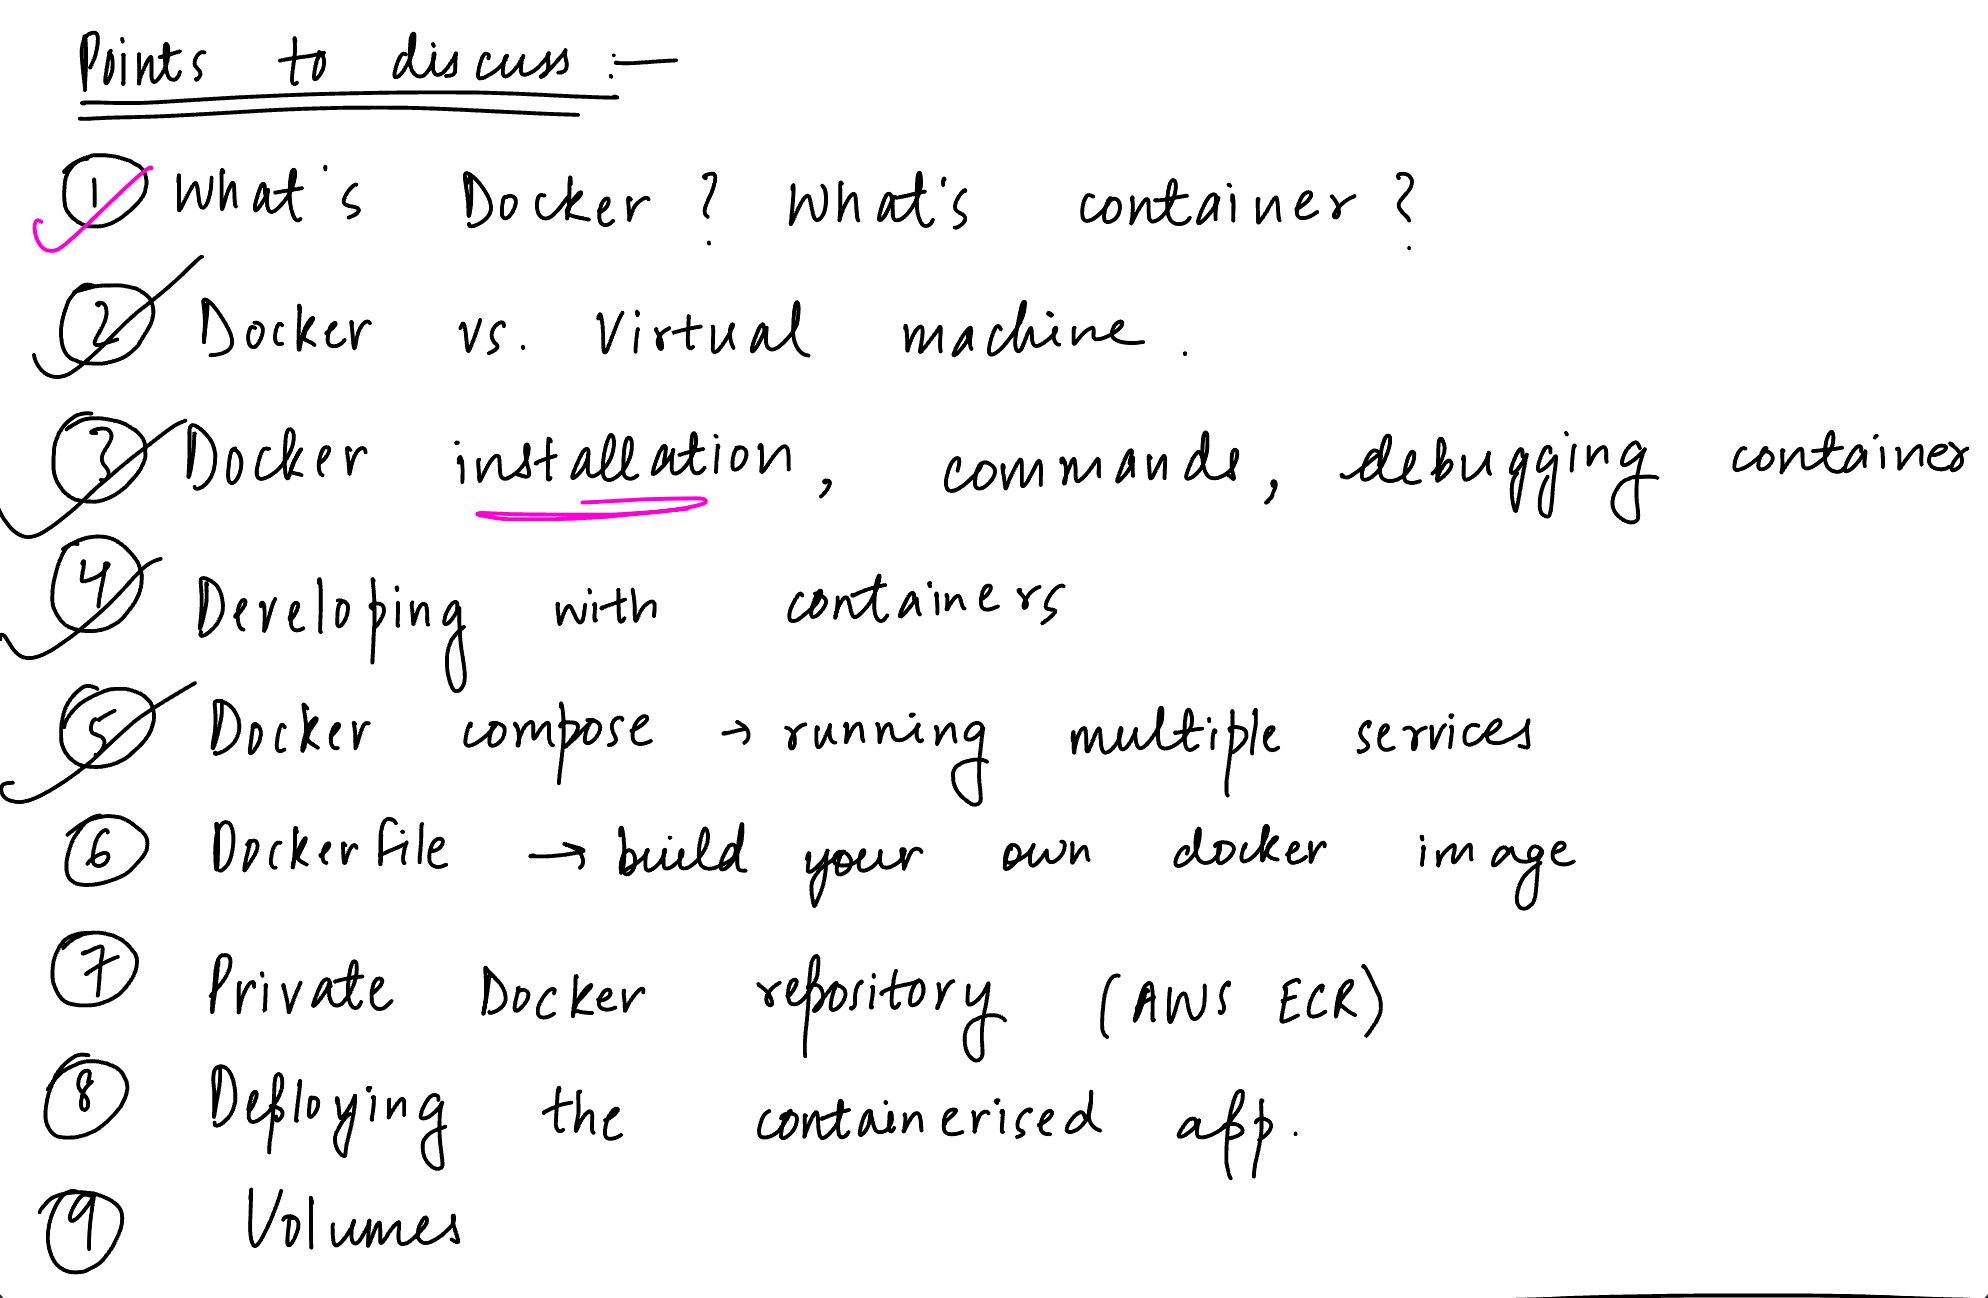 Points to discuss :—
① What's Docker ? What's container ?
② Docker vs. Virtual machine .
③ Docker installation, commands, debugging container
④ Developing with containers
⑤ Docker compose → running multiple services
⑥ Dockerfile → build your own docker image
⑦ Private Docker repository (AWS ECR)
⑧ Deploying the containerised app.
⑨ Volumes